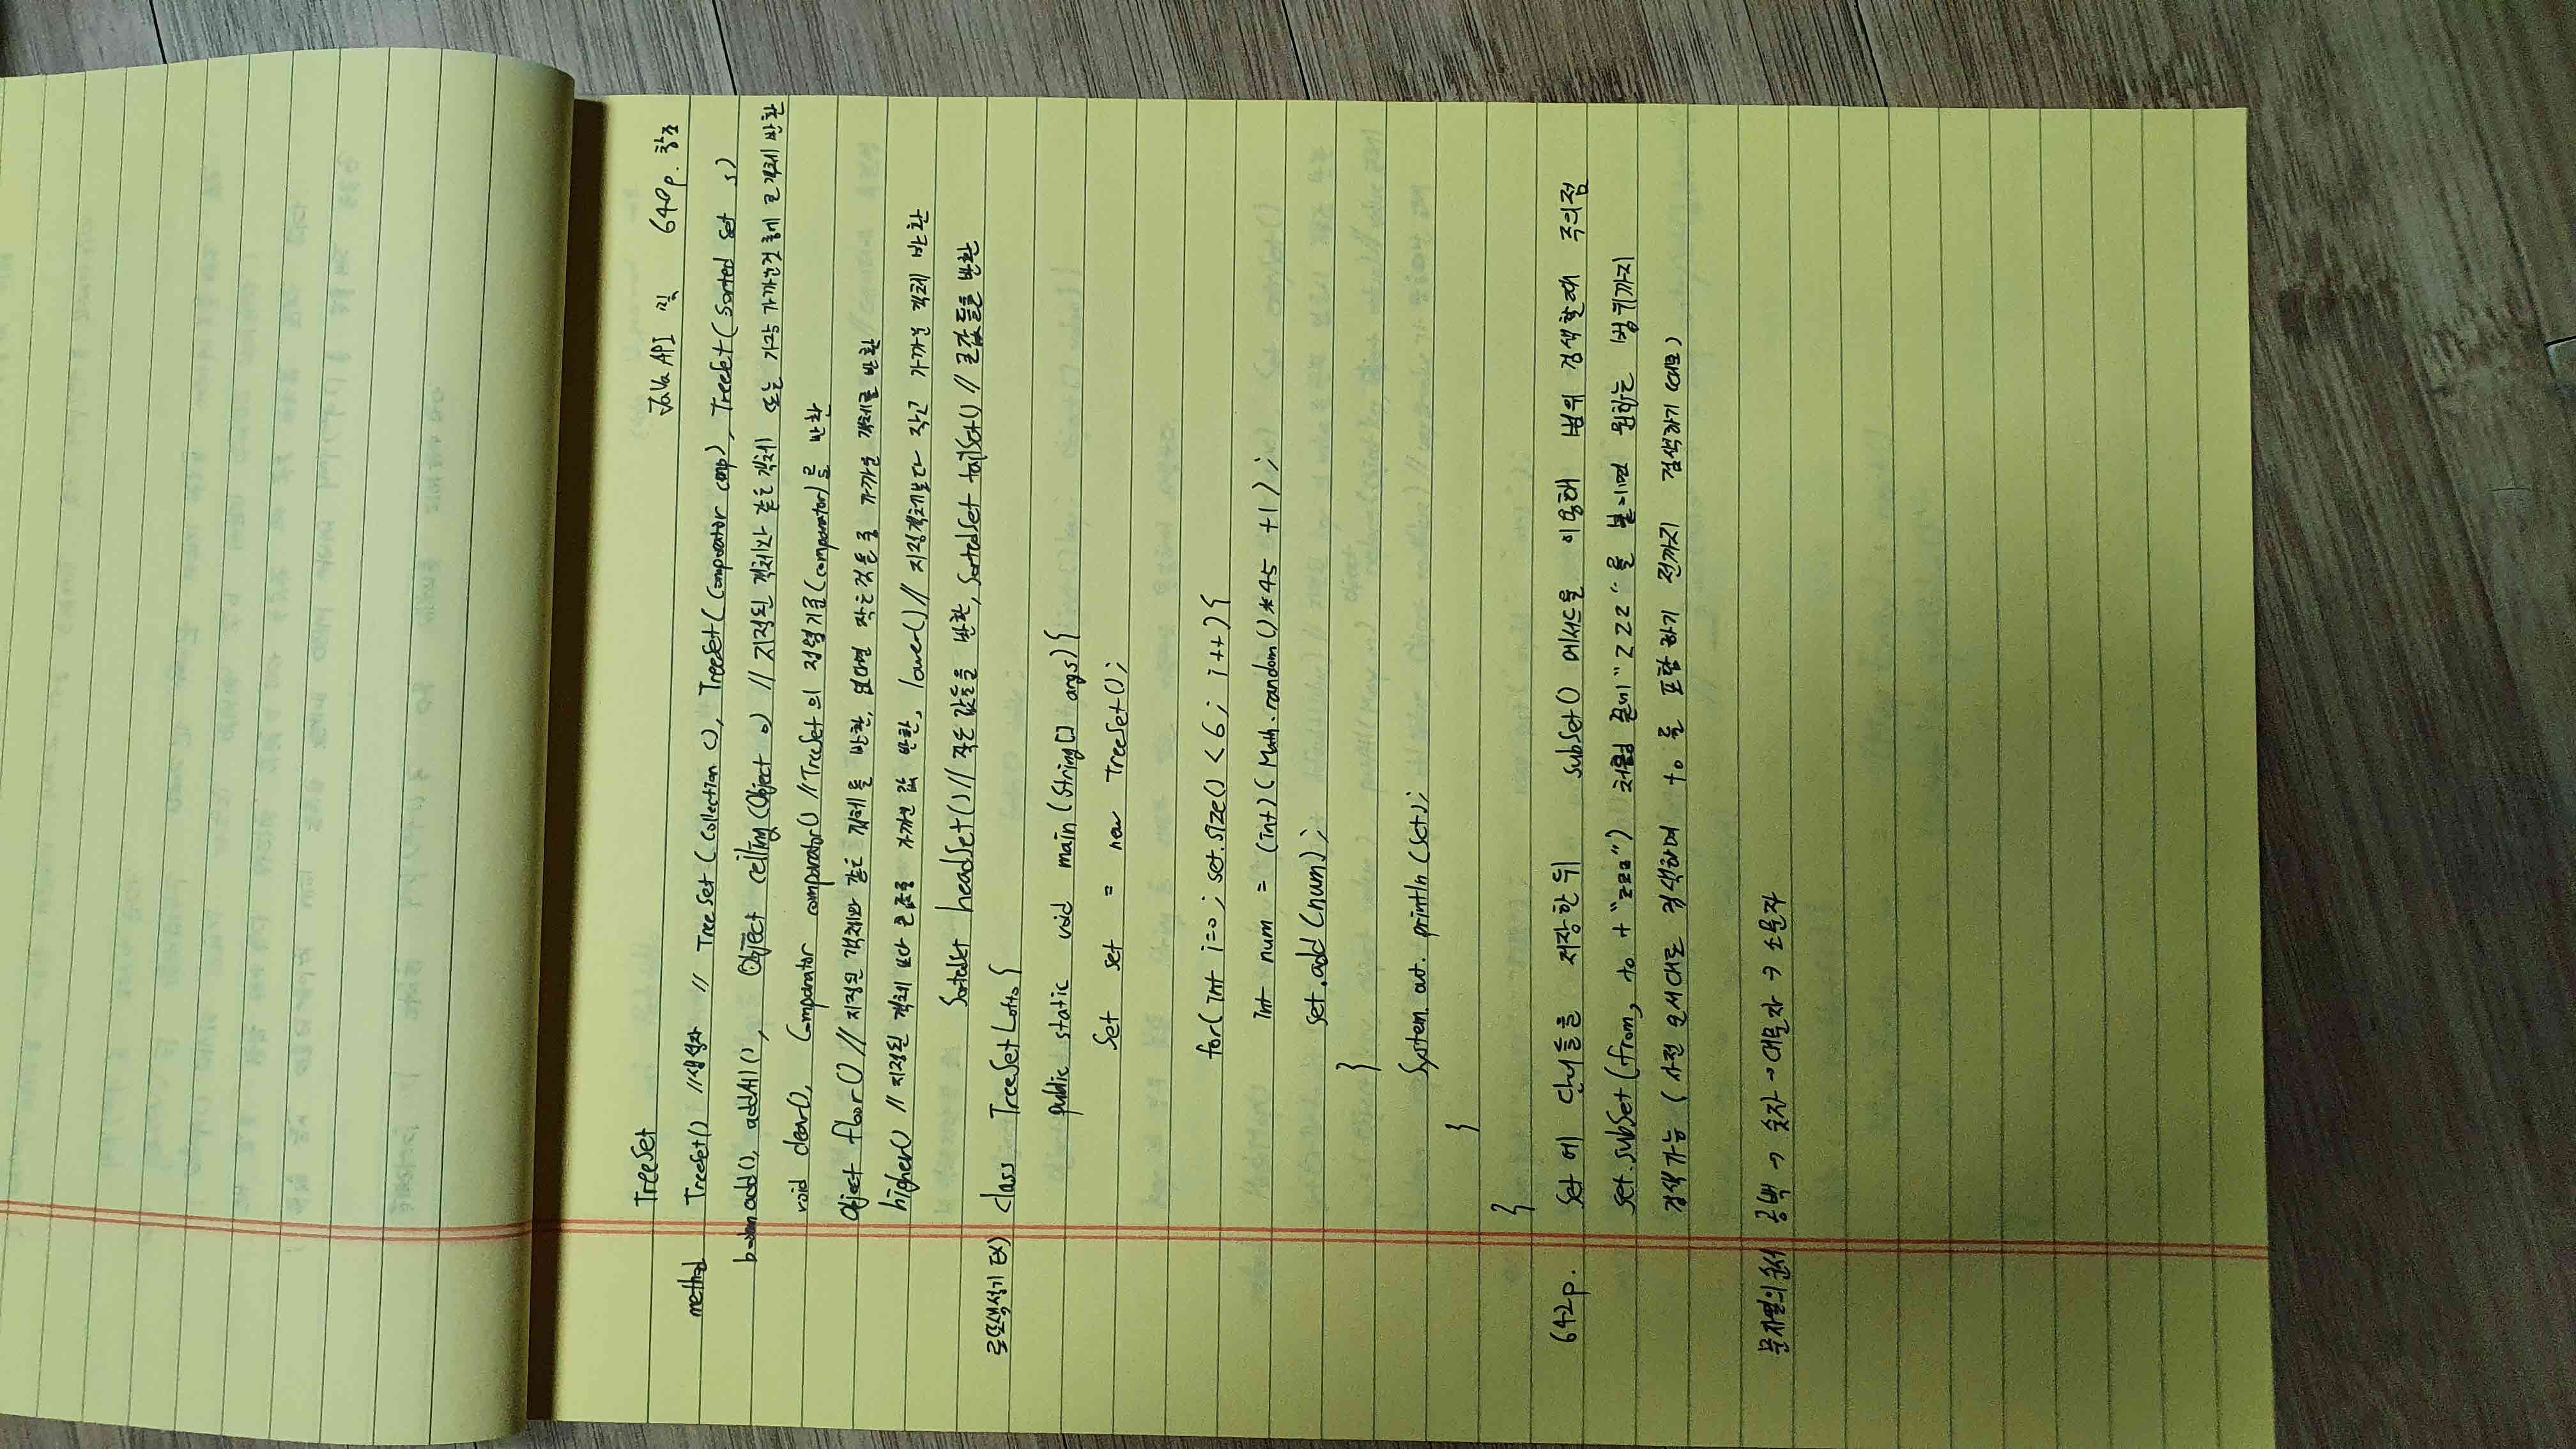 TreeSet
JaVa API 및 640p. 참조
method TreeSet() //생성자 // TreeSet(Collection c), TreeSet(Comparator comp), TreeSet(Sorted Set s)
boolean add(), addAll(), Object ceiling(Object o) // 지정된 객체와 같은 객체 또는 가장 가까운것 중에 큰 객체 반환
void clear(), Comparator comparator() // TreeSet의 정렬기준(comparator)를 반환
Object floor() // 지정된 객체와 같은 객체를 반환, 없다면 작은것들 중 가까운 객체를 반환
higher() // 지정된 객체 보다 큰값중 가까운 값 반환, lower() // 지정객체보다 작고 가까운 객체 반환
SortedSet headSet() // 작은 값들을 반환, SortedSet tailSet() // 큰값들을 반환
로또생성기 EX) class TreeSetLotto {
public static void main (String[] args) {
Set set = new TreeSet();
for( int i=0 ; set.size() < 6 ; i++) {
int num = (int)( Math.random() * 45 +1 ) ;
set.add (num) ;
}
System. out. println (set);
}
}
642p. Set 에 단어들을 저장한 뒤 subSet() 메서드를 이용해 범위 검색할때 주의점
set.subSet(from, to + "zzz") 처럼 끝에 "ZZZ"를 붙이면 원하는 범위까지
검색가능 ( 사전 순서대로 검색하며 to 를 포함하기 전까지 검색하기 때문)
문자열의 순서 공백 → 숫자 → 대문자 → 소문자